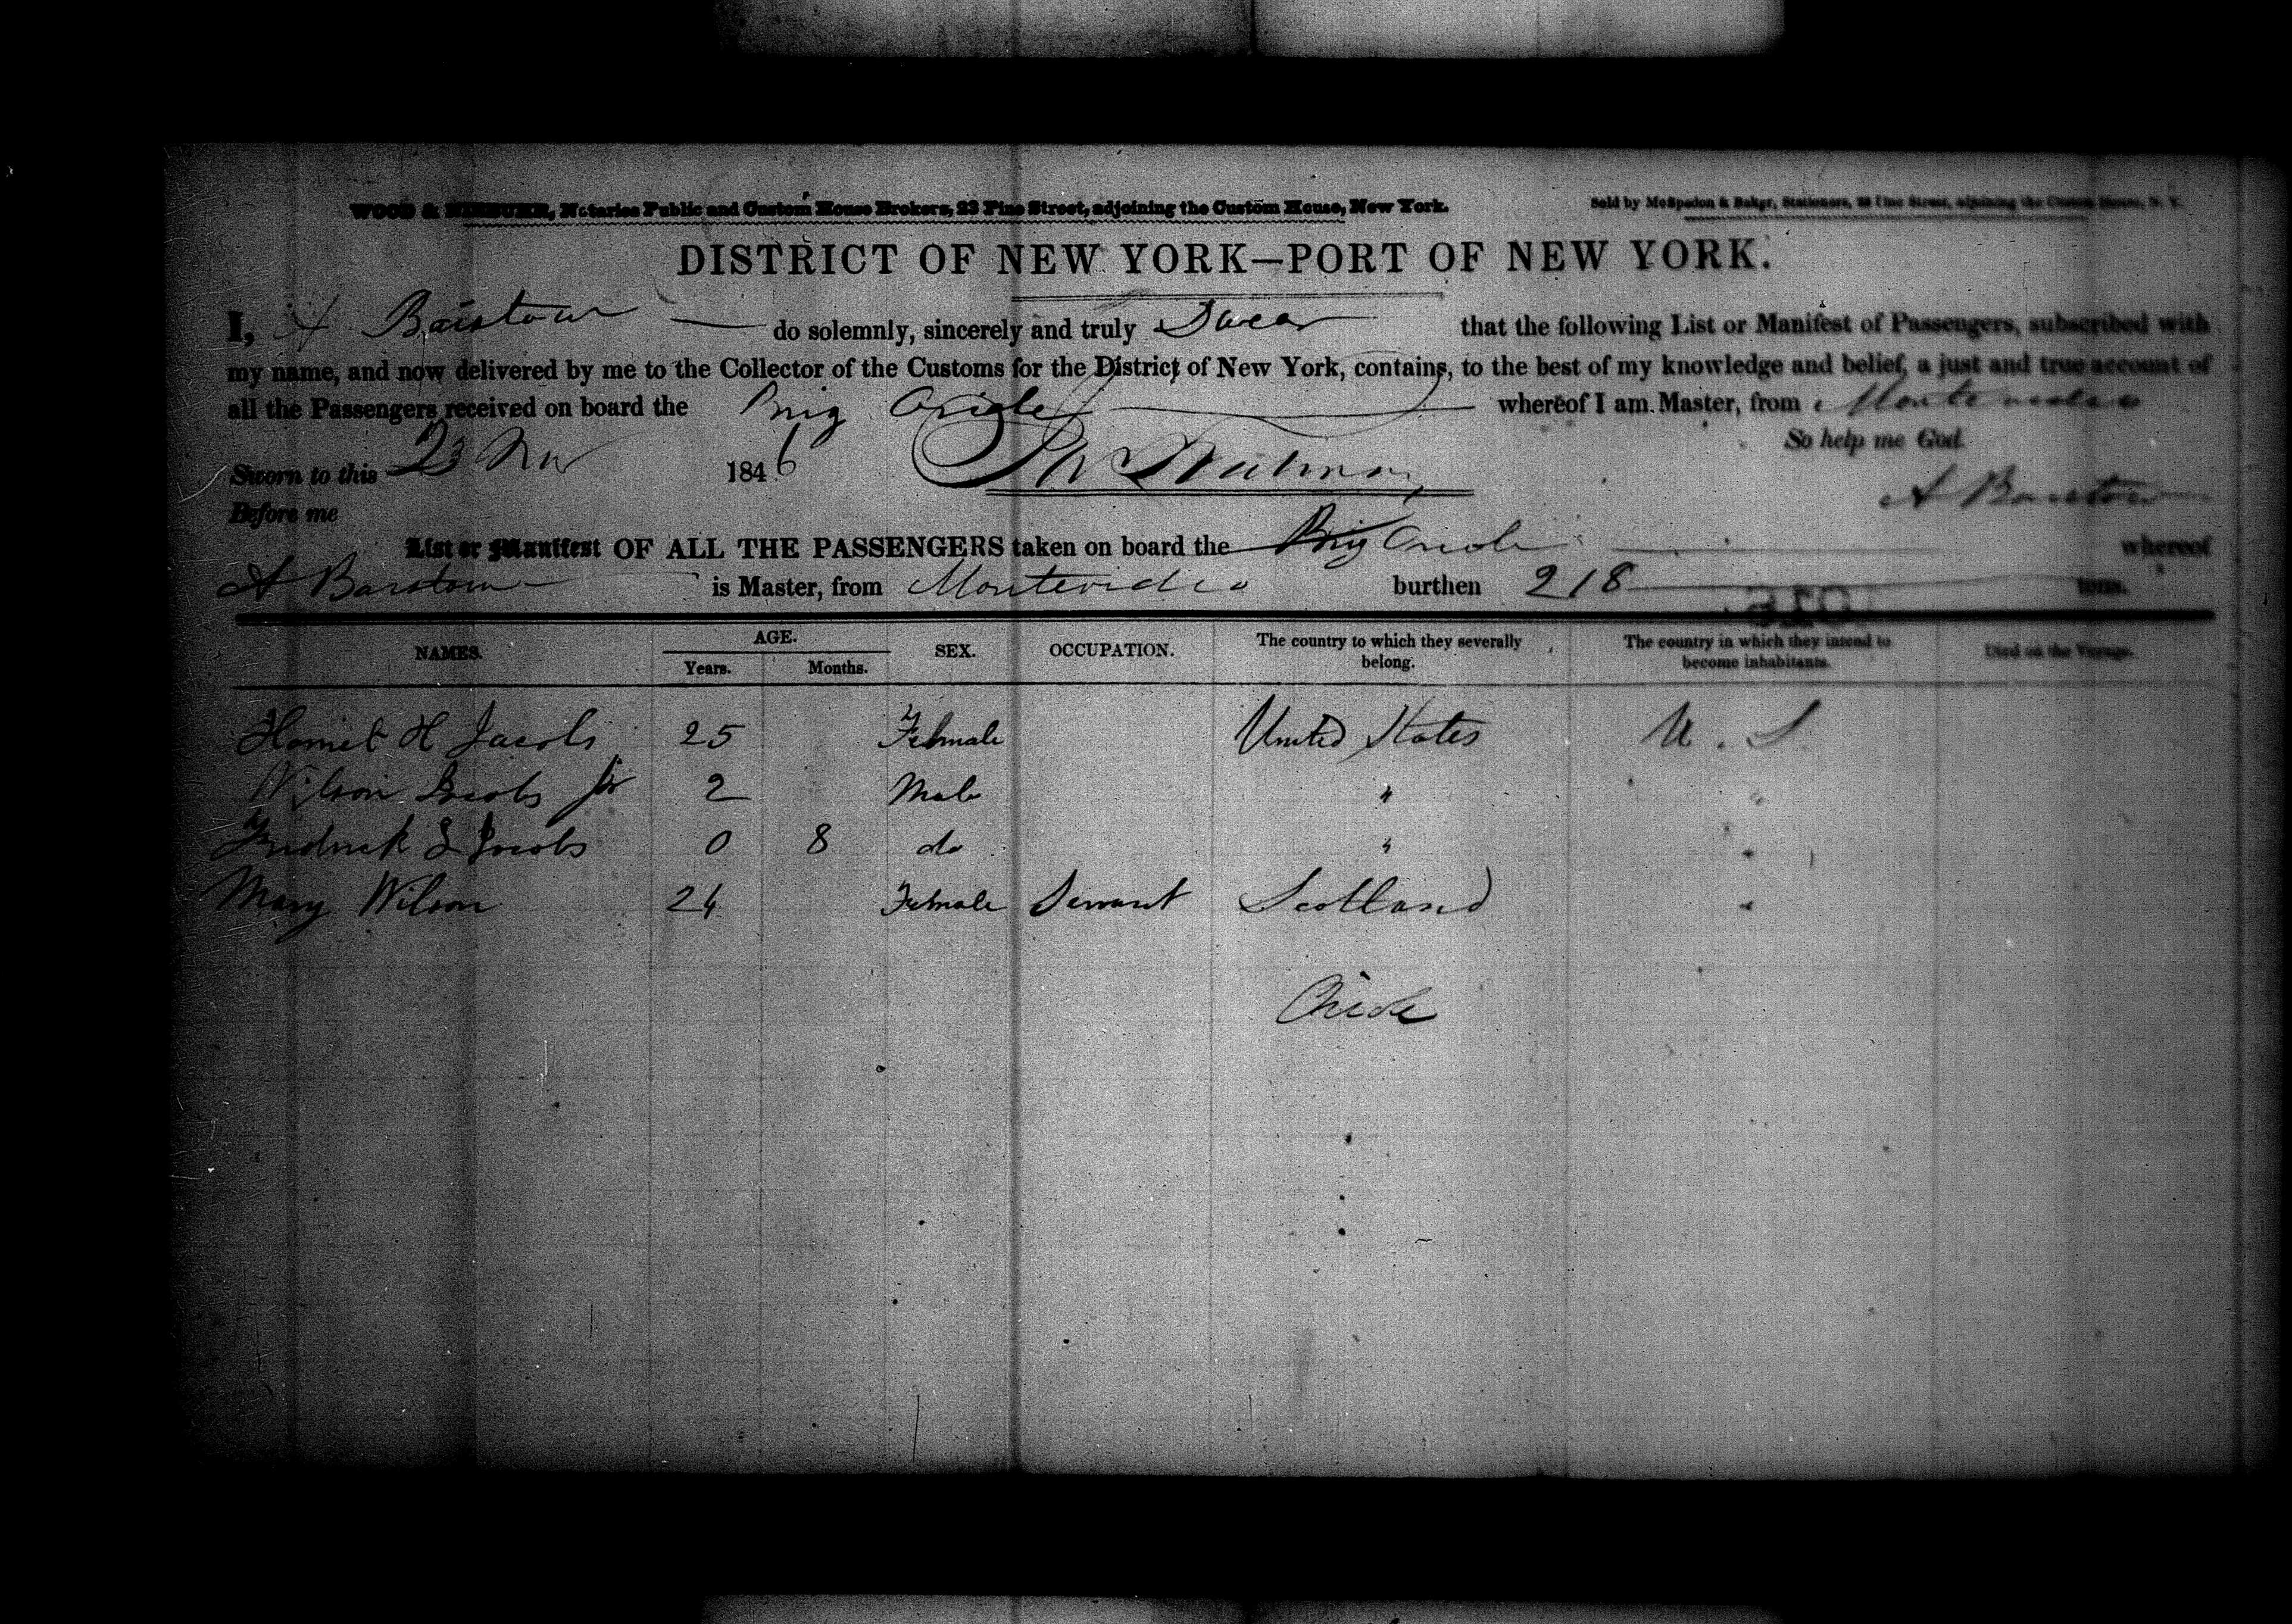 WOOD & Notaries Public and Custom House Brokers, 23 Pine Street, adjoining the Custom House, New York.
Sold by McSpedon & Baker, Stationers, 25 Pine Street, adjoining the Custom House, N. Y.
DISTRICT OF NEW YORK—PORT OF NEW YORK.
I, A Barstow do solemnly, sincerely and truly Swear that the following List or Manifest of Passengers, subscribed with
my name, and now delivered by me to the Collector of the Customs for the District of New York, contains, to the best of my knowledge and belief, a just and true account of
all the Passengers received on board the Brig Oriole whereof I am Master, from Montevideo
So help me God.
Sworn to this 23 Nov 1846
A Barstow
Before me
List or Manifest OF ALL THE PASSENGERS taken on board the Brig Oriole whereof
A Barstow is Master, from Montevideo burthen 218 tons.
NAMES. AGE. Years. Months. SEX. OCCUPATION. The country to which they severally belong. The country in which they intend to become inhabitants. Died on the Voyage.
Harriet H Jacobs 25 Female United States U. S.
Wilson Jacobs Jr 2 Male " "
Fredrick S Jacobs 0 8 do " "
Mary Wilson 24 Female Servant Scotland "
Oriole